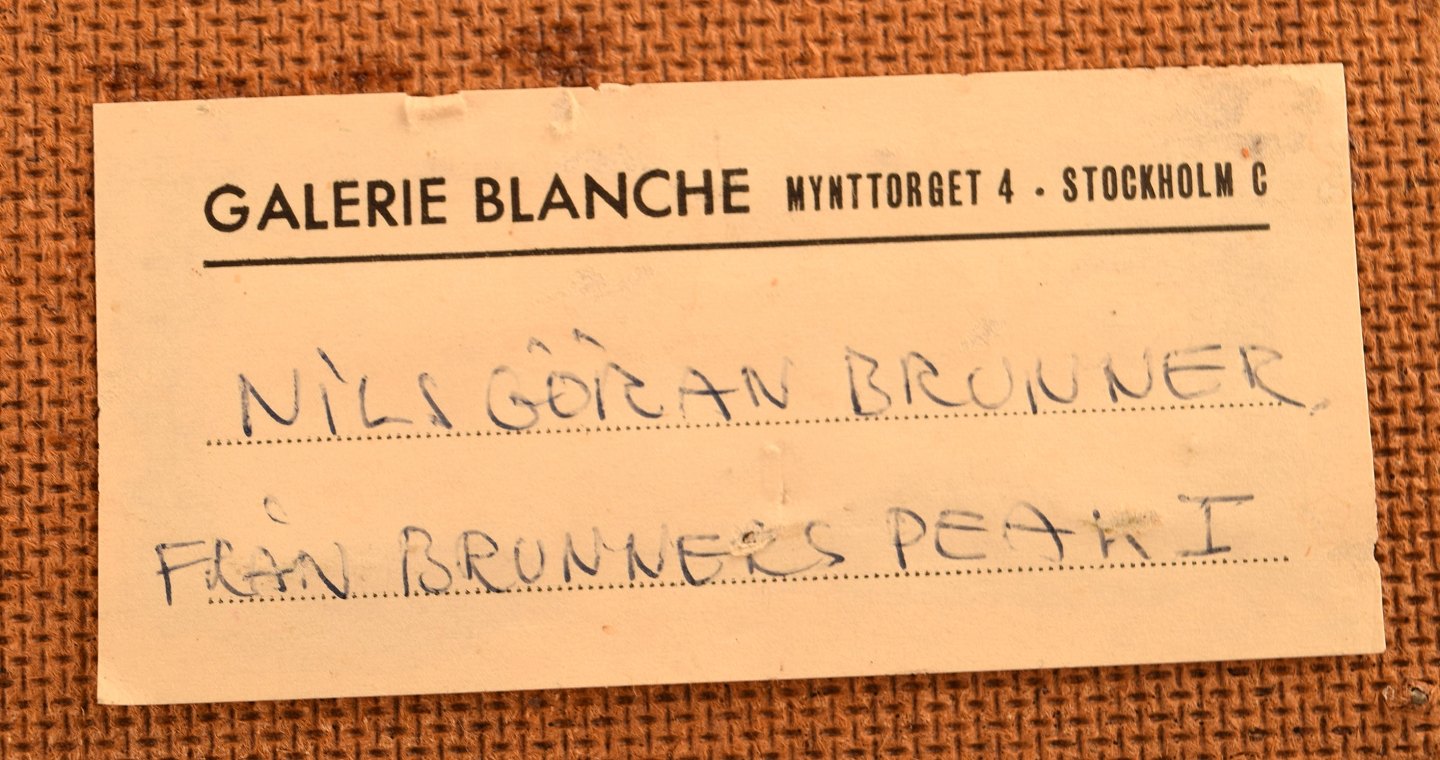 GALERIE BLANCHE MYNTTORGET 4 · STOCKHOLM C
NILS GÖRAN BRUNNER.
FRÅN BRUNNERS PEAK I